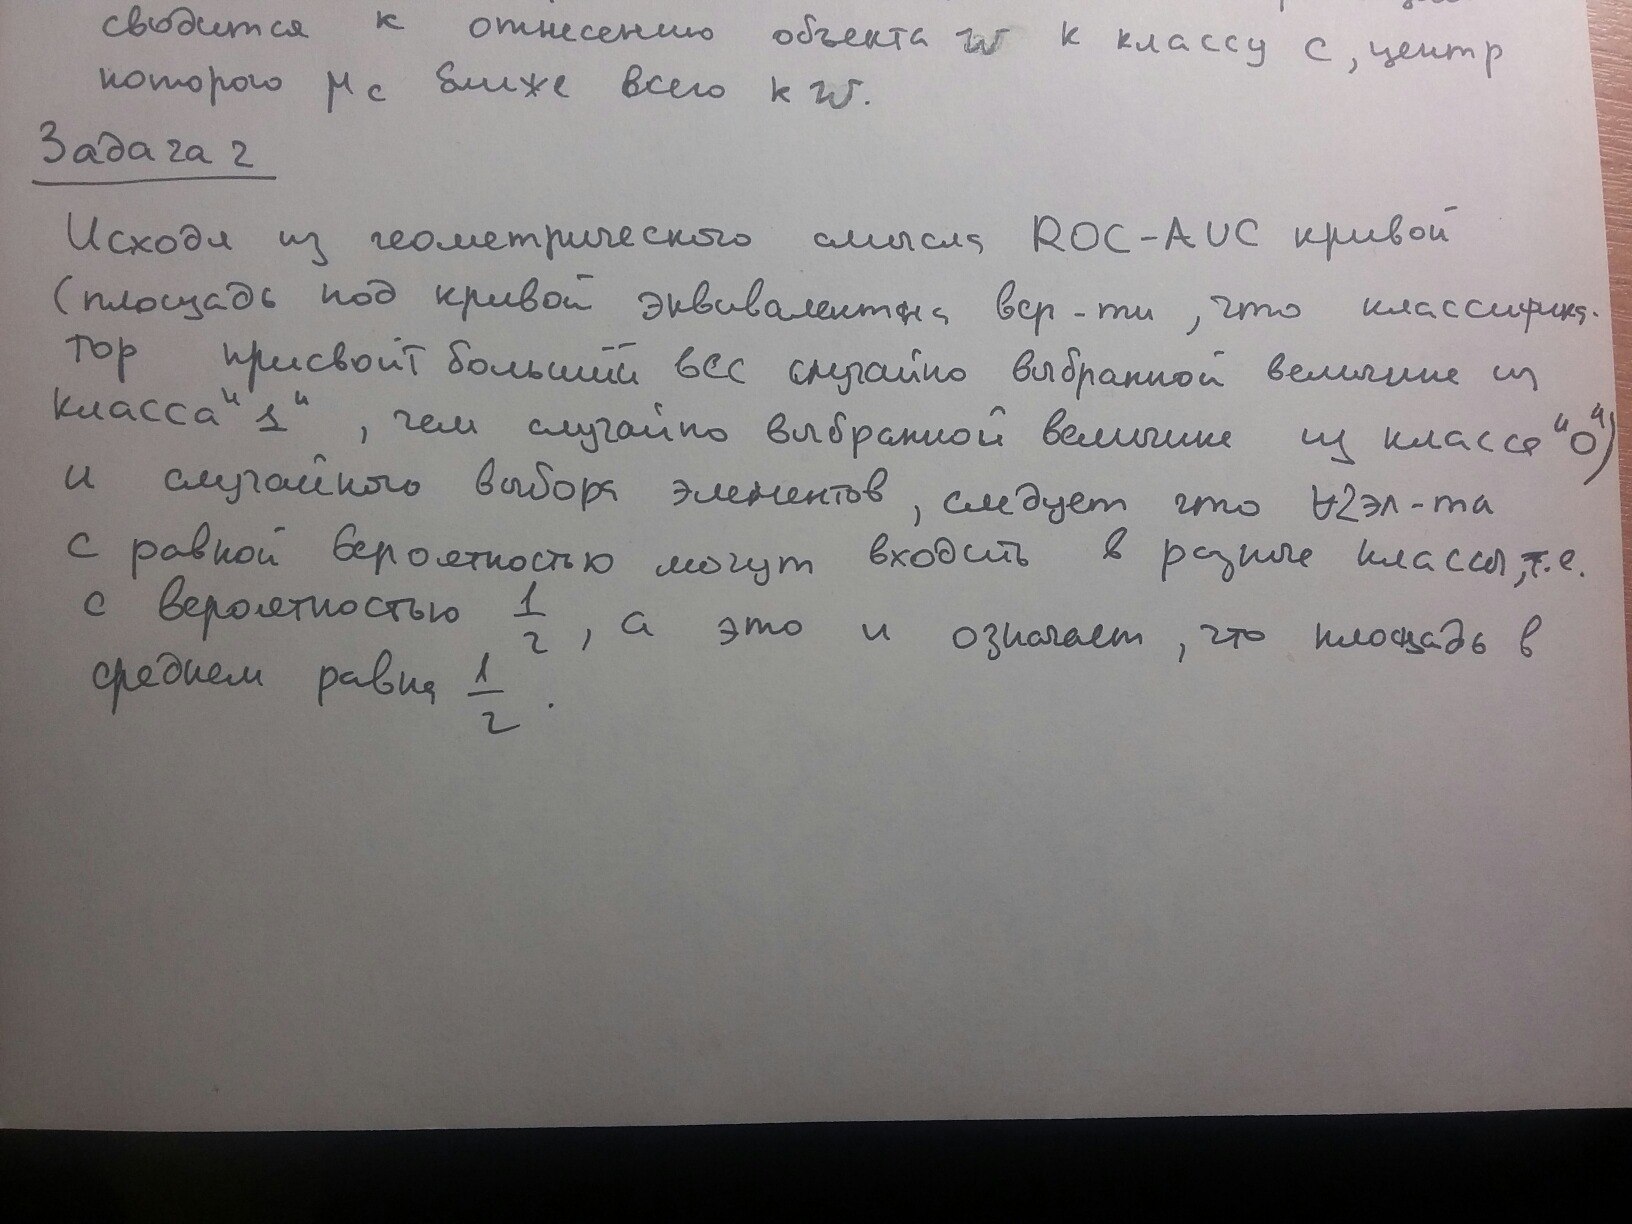 сводится к отнесению объекта w к классу c, центр
которого μc ближе всего к w.
Задача 2
Исходя из геометрического смысла ROC-AUC кривой
(площадь под кривой эквивалентна вер-ти, что классифика-
тор присвоит больший вес случайно выбранной величине из
класса "1", чем случайно выбранной величине из класса "0")
и случайного выбора элементов, следует что ∀2эл-та
с равной вероятностью могут входить в разные классы, т.е.
с вероятностью 1/2, а это и означает, что площадь в
среднем равна 1/2.